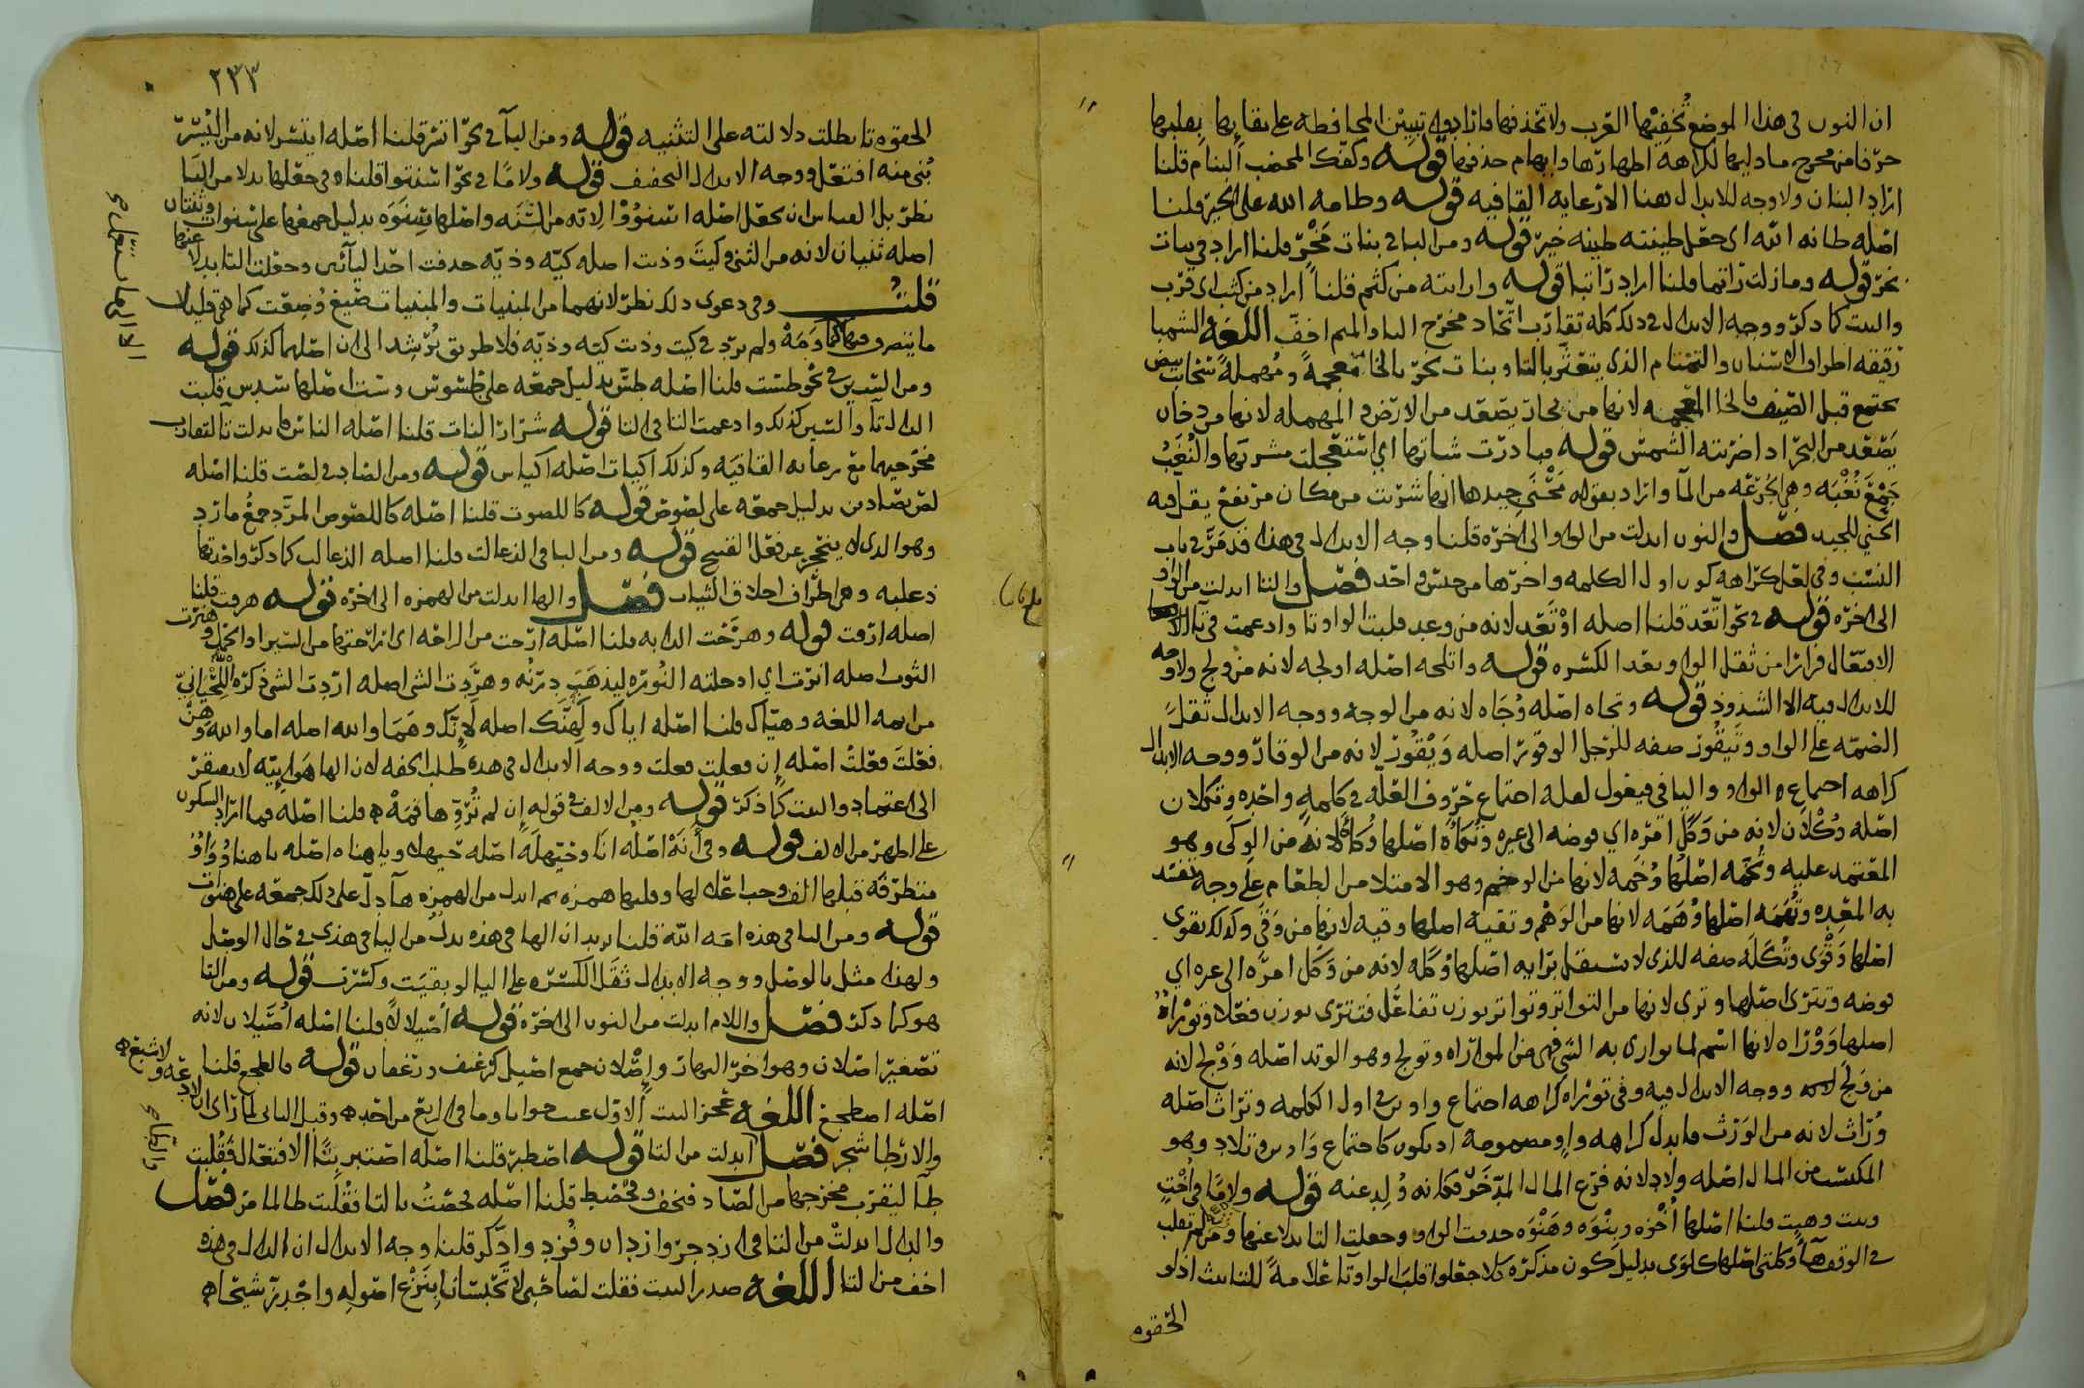 ان النون فى هذا الموضع تخفيها العرب ولا تحذفها فارادوا تبيين المحافظه على بقائها بقلبها
حرفا من مخرج ما يليها لكراهة اظهارها وابهام حذفها قوله وكفك المخضب البنام قلنا
اراد البنان ولا وجه للابدال هنا الا رعاية القافيه قوله وطامه الله على الخير قلنا
اصله طانه الله اى جعل طينته طينه خير قوله ومن البا فى بنات مخر قلنا اراد فى بنات
بخر قوله وما زلت راتما قلنا اراد راتبا قوله ورايته من كثم قلنا اراد من كثب اى قرب
والبيت كما ذكر ووجه الابدال فى ذلك كله تقارب اتحاد مخرج البا والميم اخف اللغه الشمبا
رقيقه اطراف الاسنان والتمتام الذى يتعثر بالتا وبنات بخر بالخا معجمة ومهملة سحاب بيض
يجتمع قبل الصيف بالخا المعجمه لانها من بخار يصعد من الارض والمهمله لانها من دخان
يصعد من البحر اذا ضربته الشمس قوله مبادرت شاتها اى استعجلت مشربها والنغب
جمع نغبه وهى الجرعه من الما واراد بقوله مخنى جيدها انها شربت من مكان مرتفع يقل فيه
الحنى للجيد فصل والنون ابدلت من الواو الى اخره قلنا وجه الابدال فى هذا قد مر فى باب
النسب وفى لعل كراهة كون اول الكلمه واخرها من جنس واحد فصل والتا ابدلت من الواو
الى اخره قوله فى نحو اتعد قلنا اصله اوتعد لانه من وعد فلبت الواو تا وادغمت فى تا
الافتعال فرارا من ثقل الواو بعد الكسره قوله واتلجه اصله اولجه لانه من ولج ولا وجه
للابدال فيه الا الشذوذ قوله وتجاه اصله وجاه لانه من الوجه ووجه الابدال ثقل
الضمه على الواو وتيقور صفه للرجل الوقور اصله ويقور لانه من الوقار ووجه الابدال
كراهه اجتماع الواو واليا فى فيعول لعله اجتماع حروف العله فى كلمة واحده وتكلان
اصله وكلان لانه من وكل امره اي فوضه الى غيره وتكأه اصلها وكأه لانه من الوكى وهو
المعتمد عليه وتخمه اصلها وخمه لانها من الوخم وهو الامتلا من الطعام على وجه تفسد
به المعده وتهمه اصلها وهمه لانها من الوهم وتقيه اصلها وقيه لانها من وقى وكذلك تقوى
اصلها وقوى وتكله صفه للذى لا يستقل برايه اصلها وكله لانه من وكل امره الى غيره اي
فوضه وتترى اصلها وترى لانها من التواتر وتواتر بوزن تفاعل فتترى بوزن فعلا وتوراه
اصلها وورّاه لانها اسم لما يوارى به الشى فهى من المواراه وتولج وهو الوتد اصله وولج لانه
من ولج ووجه الابدال فيه وفى توراه كراهه اجتماع واوين فى اول الكلمه وتراث اصله
وراث لانه من الورث فابدل كراهه واو مضمومه اذ يكون كاجتماع واوين وتلاد وهو
المكتسب من المال اصله ولاد لانه فرع المال المدخر فكانه ولد عنه قوله ولاما فى اخت
وبنت وهنت قلنا اصلها اخوه وبنوه وهنوه حذفت الواو وجعلت التا بدلا عنها ومن ثم لم تقلب
فى الوقف هآ وكلتى اصلها كلوى بدليل كون مذكره كلا جعلوا قلب الواو تا علامة للتانيث اذ لو
الحقوه
٢٣٣
الحقوه تا بطلت دلالته على التثنيه قوله ومن اليآ فى نحو اتسر قلنا اصله ايتسر لانه من اليسر
بنى منه افتعل ووجه الابدال التخفيف قوله ولاما فى نحو اسنتوا قلنا وفى جعلها بدلا من اليا
نظر بل القياس ان يجعل اصله اسنووا لانه من السنه واصلها سنوه بدليل جمعها على سنوات وثنتان
اصله ثنيان لانه من الثنى وكيت وذيت اصله كيه وذيه حذفت احدا اليائين وجعلت التا بدلا عنها
قلت وفى دعوى ذلك نظر لانهما من المبنيات والمبنيات صيغ وضعت كما هى قليلا
ما يتصرف فيها ولم يرد فى كيت وذيت كيه وذيه فلا طريق يرشد الى ان اصلهما كذلك قوله
ومن السين فى نحو طست قلنا اصله طس بدليل جمعه على طسوس وست اصلها سدس قلبت
الدال تآ والسين كذلك وادغمت التا فى التا قوله شرار النات قلنا اصله الناس فابدلت تآ لتقارب
مخرجيهما مع رعاية القافيه وكذلك اكيات اصله اكياس قوله ومن الصاد فى لصت قلنا اصله
لص بصادين بدليل جمعه على لصوص قوله كاللصوت قلنا اصله كاللصوص المرد جمع مارد
وهو الذى لا ينحجز عن فعل القبيح قوله ومن البا فى الذعالت قلنا اصله الذعالب كما ذكر واحدتها
ذعلبه وهى اطراف اخلاق الثياب فصل والها ابدلت من الهمزه الى اخره قوله هرقت قلنا
اصله ارقت قوله وهرحت الدابه قلنا اصله ارحت من الراحه اى ارحتها من السير او الحمل وهنرت
الثوب اصله انرت اي ادخلته النوره ليذهب درنه وهردت الشى اصله اردت الشى ذكره اللحيانى
من ائمه اللغه وهياك قلنا اصله اياك ولهنك اصله لانك وهما والله اصله اما والله وهن
فعلت فعلت اصله إن فعلت فعلت ووجه الابدال فى هذه طلب الخفه لان الها هوايية لا يفتقر
الى اعتماد والبيت كما ذكر قوله ومن الالف فى قوله ان لم تروها فمه قلنا اصله فما اراد السكون
على اظهر من الالف قوله وفى أنه اصله انا وحيهله اصله حيهلا ويا هناه اصله يا هناو وواو
متطرفه قبلها الف وجب اعلالها وقلبها همزه ثم ابدل من الهمزه هآ دل على ذلك جمعه على هنوات
قوله ومن اليا فى هذه امة الله قلنا يريد ان الها فى هذه بدل من اليا فى هذى فى حال الوصل
ولهذا مثل بالوصل ووجه الابدال ثقل الكسره على اليا لو بقيت وكسرت قوله ومن التا
هو كما ذكر فصل واللام ابدلت من النون الى اخره قوله اصيلالا قلنا اصله اصيلان لانه
تصغير اصلان وهو اخر النهار وإصلان جمع اصيل كرغيف ورغفان قوله فالطجع قلنا
اصله اضطجع اللغه عجز البيت الاول عيت جوابا وما فى الربع من احد وقبل الثانى لما راى ان لا دعه ولا شبع
والارطا شجر فصل ابدلت من التا قوله اصطبر قلنا اصله اصتبر بتا الافتعال فقلبت
طآ ليقرب مخرجها من الصاد فتخف وفحصط قلنا اصله فحصت بالتا فقلبت طا لما مر فصل
والدال ابدلت من التا فى ازدجر وازدان وفزد وادكر قلنا وجه الابدال ان الدال فى هذه
اخف من التا اللغه صدر البيت فقلت لصاحبى لا تحبسانا بنزع اصوله واجدز شيحا